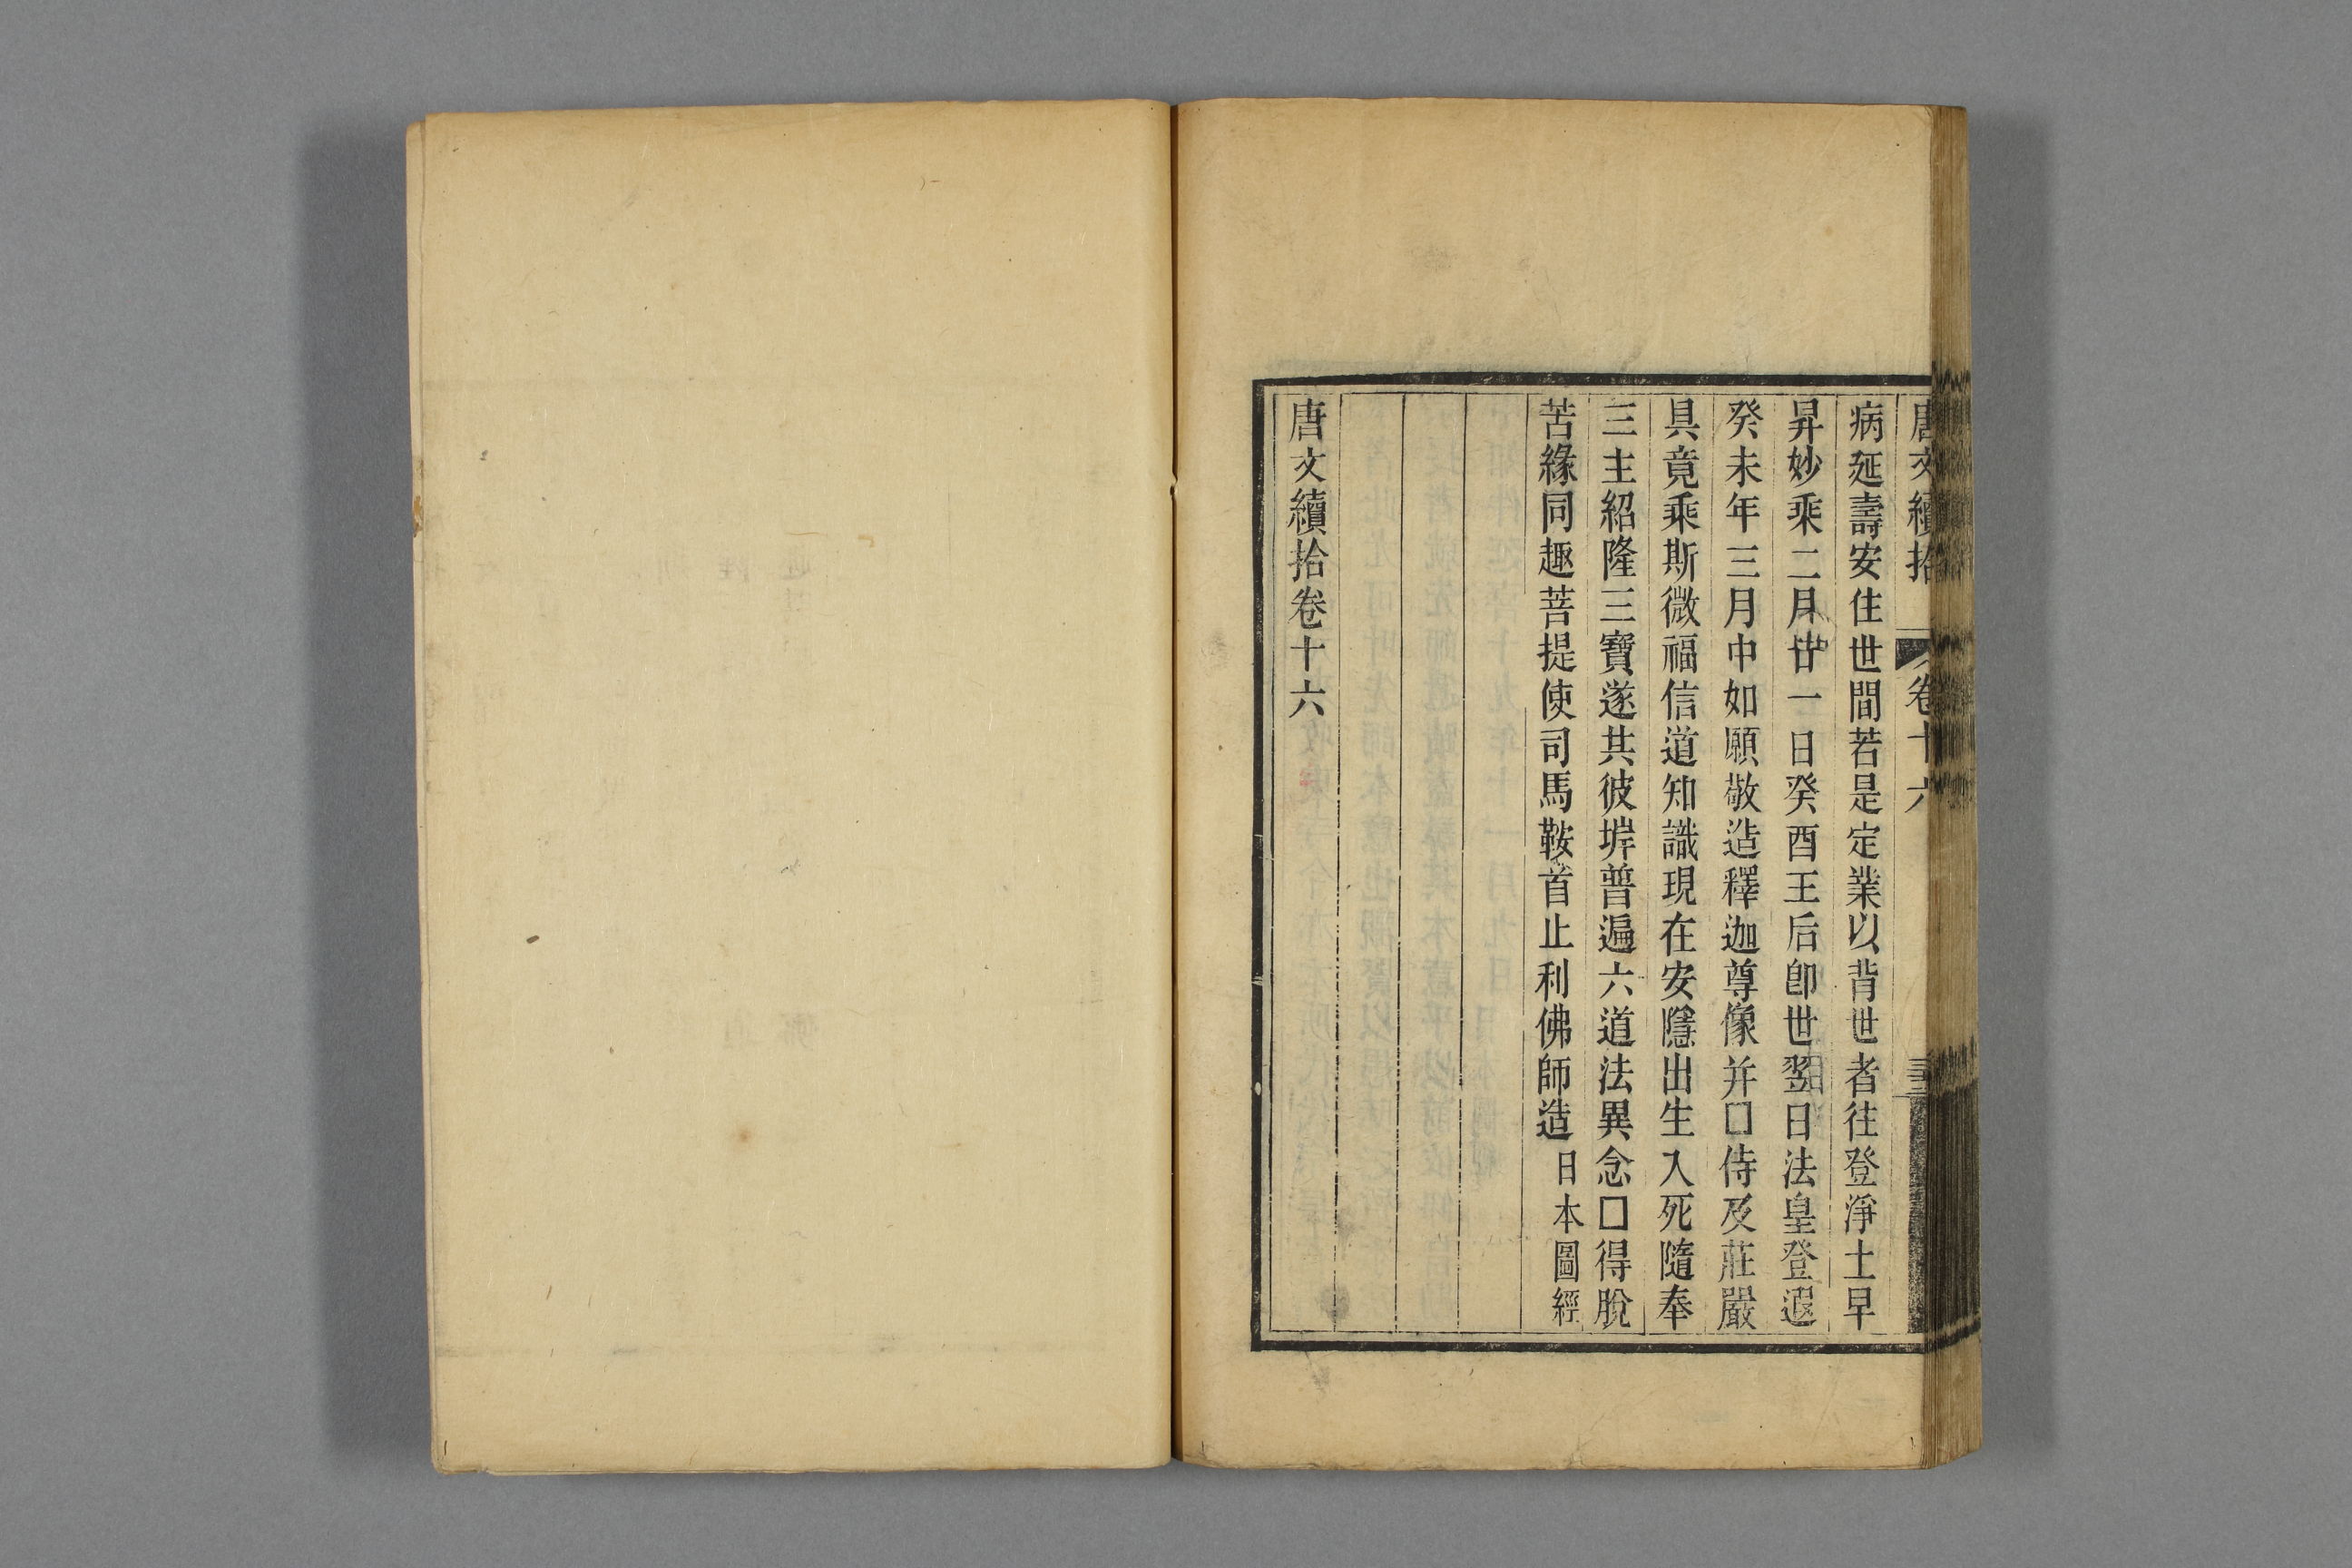 唐文續拾 卷十六
病延壽安住世間若是定業以背世者往登淨土早
昇妙乘二月廿一日癸酉王后卽世翌日法皇登遐
癸未年三月中如願敬造釋迦尊像并□侍及莊嚴
具竟乘斯微福信道知識現在安隱出生入死隨奉
三主紹隆三寶遂其彼垾普遍六道法異念□得脫
苦緣同趣菩提使司馬鞍首止利佛師造 日本圖經
唐文續拾卷十六